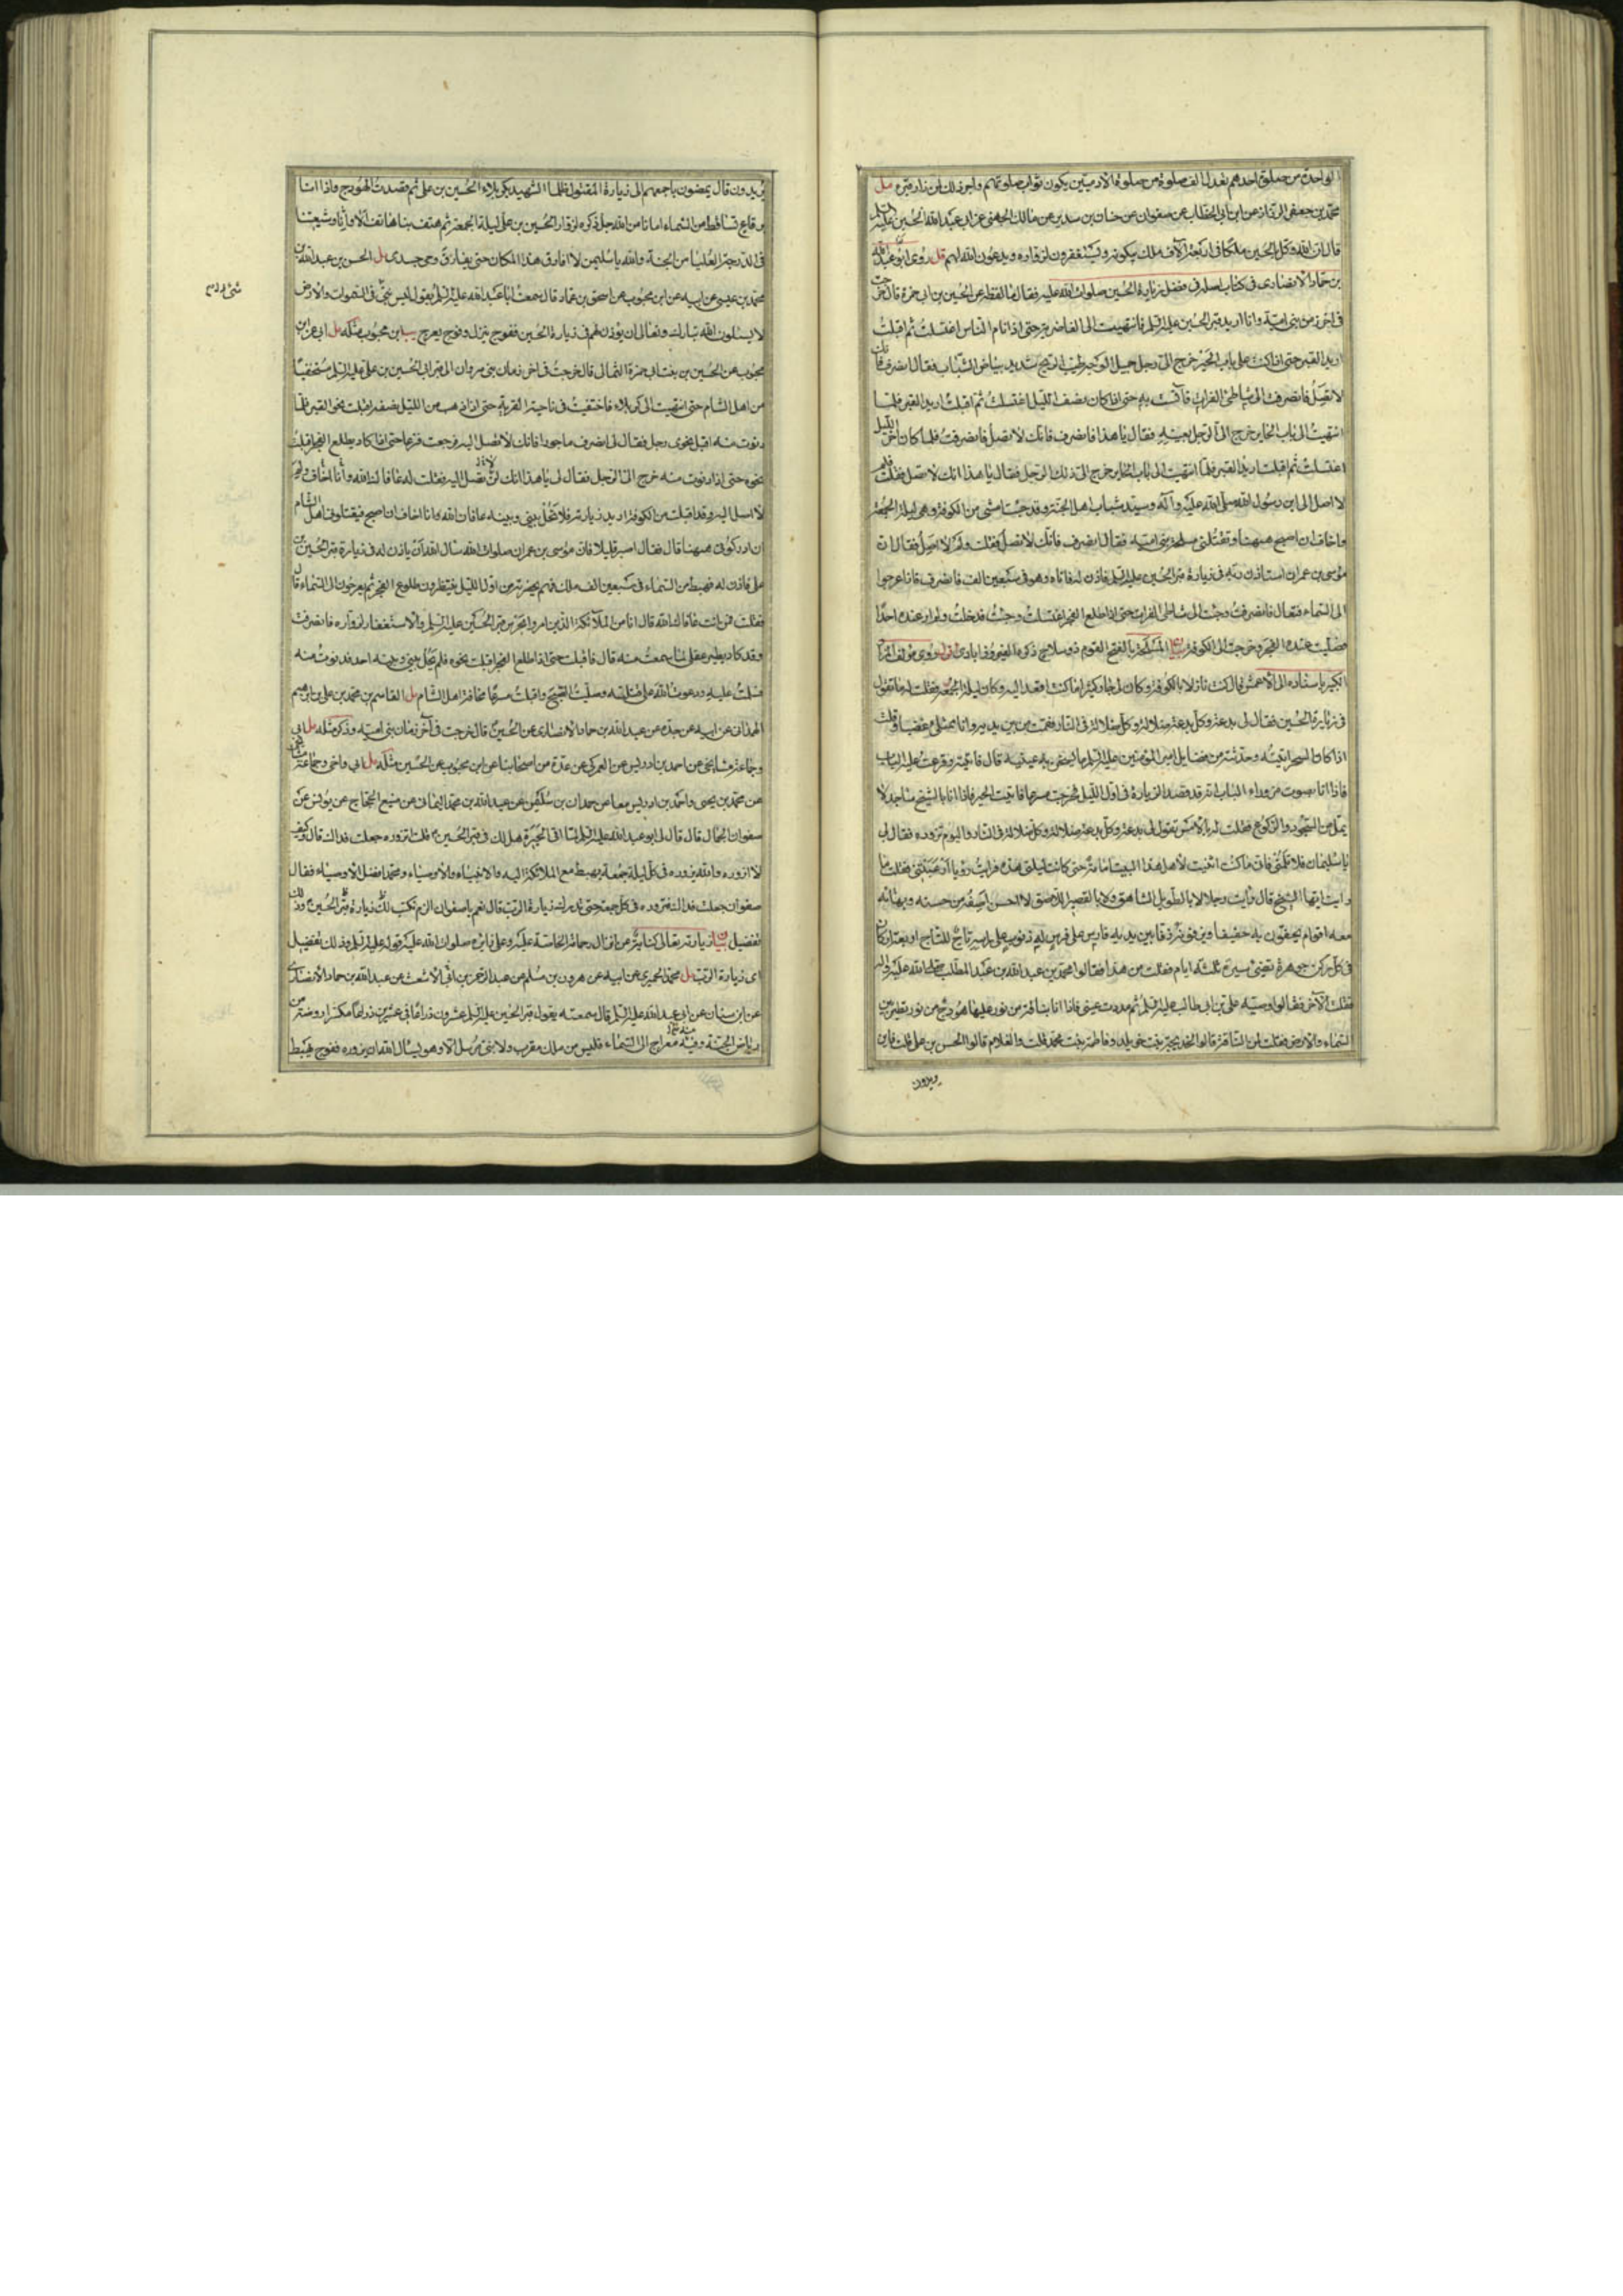 الواحدة من صلوة احدهم تعدل الف صلوة من صلوة الآدميين يكون ثواب صلوتهم واجر ذلك لمن زار قبره مل
محمد بن جعفر الرزاز عن ابن ابي الخطاب عن صفوان عن حنان بن سدير عن مالك الجهني عن ابي عبد الله الحسين عليه السلم
قال ان الله وكل بالحسين ملكا في اربعة آلاف ملك يبكونه ويستغفرون لزواره ويدعون الله لهم قل روى ابو عبد الله
بن حماد الانصاري في كتاب اصله في فضل زيارة الحسين صلوات الله عليه فقال ما لفظه عن الحسين بن ابي حمزة قال خرجت
في اخر زمن بني امية وانا اريد قبر الحسين عليه السلم فانتهيت الى الغاضرية حتى اذا نام الناس اغتسلت ثم اقبلت
اريد القبر حتى اذا كنت على باب الحير خرج الي رجل جميل الوجه طيب الريح شديد بياض الثياب فقال انصرف فانك
لا تصل فانصرفت الى شاطئ الفرات فآنست به حتى اذا كان نصف الليل اغتسلت ثم اقبلت اريد القبر فلما
انتهيت الى باب الحاير خرج الي الرجل بعينه فقال يا هذا فانصرف فانك لا تصل فانصرفت فلما كان اخر الليل
اغتسلت ثم اقبلت اريد القبر فلما انتهيت الى باب الحاير خرج الي ذلك الرجل فقال يا هذا انك لا تصل فقلت فلم
لا اصل الى ابن رسول الله صلى الله عليه وآله وسيد شباب اهل الجنة وقد جئت امشي من الكوفة وهي ليلة الجمعة
واخاف ان اصبح ههنا وتقتلني مسلحة بني امية فقال انصرف فانك لا تصل فقلت ولم لا اصل فقال ان
موسى بن عمران استاذن ربه في زيارة قبر الحسين عليه السلم فاذن له فاتاه وهو في سبعين الف فانصرف فاذا عرجوا
الى السماء فتعال فانصرفت وجئت الى شاطئ الفرات حتى اذا طلع الفجر اغتسلت وجئت فدخلت ولم ار عنده احدا
فصليت عنده الفجر وخرجت الى الكوفة بيان المسلحة بالفتح القوم ذو سلاح ذكره الفيروزابادي قل وروى مؤلف المزار
الكبير باسناده الى الاعمش قال كنت نازلا بالكوفة وكان لي جار كثيرا ما كنت اقعد اليه وكان ليلة الجمعة فقلت له ما تقول
في زيارة الحسين فقال لي بدعة وكل بدعة ضلالة وكل ضلالة في النار فقمت من بين يديه وانا ممتلئ غضبا وقلت
اذا كان السحر اتيته وحدثته من فضايل امير المؤمنين عليه السلم ما يسخن به عينيه قال فاتيته وقرعت عليه الباب
فاذا انا بصوت من وراء الباب انه قد قصد الزيارة في اول الليل فخرجت مسرعا فاتيت الحير فاذا انا بالشيخ ساجد لا
يمل من السجود والركوع فقلت له بالامس تقول لي بدعة وكل بدعة ضلالة وكل ضلالة في النار واليوم تزوره فقال لي
يا سليمان فلا تلمني فاني ما كنت اثبت لاهل هذا البيت امامة حتى كانت ليلتي هذه فرايت رؤيا ارعبتني فقلت ما
رايت ايها الشيخ قال رايت رجلا لا بالطويل الشاهق ولا بالقصير اللاصق لا احسن اصفه من حسنه وبهائه
معه اقوام يحفون به حفيفا ويزفونه زفا بين يديه فارس على فرس له ذنوب على راسه تاج للتاج اربعة اركان
في كل ركن جوهرة تضيئ مسيرة ثلثة ايام فقلت من هذا فقالوا محمد بن عبد الله بن عبد المطلب صلى الله عليه وآله
فقلت والآخر فقالوا وصيه علي بن ابي طالب عليه السلم ثم مددت عيني فاذا انا بناقة من نور عليها هودج من نور تطير بين
السماء والارض فقلت لمن الناقة قالوا لخديجة بنت خويلد وفاطمة بنت محمد قلت والغلام قالوا الحسن بن علي قلت فاين
يريدون
يريدون قال يمضون باجمعهم الى زيارة المقتول ظلما الشهيد بكربلاء الحسين بن علي ثم قصدت الهودج واذا انا
برقاع تساقط من السماء امانا من الله جل ذكره لزوار الحسين بن علي ليلة الجمعة ثم هتف بنا هاتف الا واننا وشيعتنا
في الدرجة العليا من الجنة والله يا سليمن لا افارق هذا المكان حتى يفارق روحي جسدي مل الحسن بن عبد الله بن
محمد بن عيسى عن ابيه عن ابن محبوب عن اسحق بن عمار قال سمعت ابا عبد الله عليه السلم يقول ليس نبي في السموات والارض
لا يسئلون الله تبارك وتعالى ان يؤذن لهم في زيارة الحسين ففوج ينزل وفوج يعرج يب ابن محبوب مثله مل ابي عن ابن
محبوب عن الحسين بن بنت ابي حمزة الثمالي قال خرجت في اخر زمان بني مروان الى قبر الحسين بن علي عليه السلم مستخفيا
من اهل الشام حتى انتهيت الى كربلاء فاختفيت في ناحية القرية حتى اذا ذهب من الليل نصفه اقبلت نحو القبر فلما
دنوت منه اقبل نحوي رجل فقال لي انصرف ماجورا فانك لا تصل اليه فرجعت فزعا حتى اذا كاد يطلع الفجر اقبلت
نحوه حتى اذا دنوت منه خرج الي الرجل فقال لي يا هذا انك لن تصل اليه فقلت له عافاك الله ولم
لا اصل اليه وقد اقبلت من الكوفة اريد زيارته فلا تحل بيني وبينه عافاك الله وانا اخاف ان اصبح فيقتلوني اهل الشام
ان ادركوني ههنا قال فقال اصبر قليلا فان موسى بن عمران صلوات الله سال الله ان ياذن له في زيارة قبر الحسين بن
علي فاذن له فهبط من السماء في سبعين الف ملك فهم بحضرته من اول الليل ينتظرون طلوع الفجر ثم يعرجون الى السماء قال
فقلت فمن انت عافاك الله قال انا من الملائكة الذين امروا بحرس قبر الحسين عليه السلم والاستغفار لزواره فانصرفت
وقد كاد يطير عقلي لما سمعت منه قال فاقبلت حتى اذا طلع الفجر اقبلت نحوه فلم يحل بيني وبينه احد فدنوت منه
فسلمت عليه ودعوت الله على قتلته وصليت الصبح واقبلت مسرعا مخافة اهل الشام مل القاسم بن محمد بن علي بن ابرهيم
الهمداني عن ابيه عن جده عن عبد الله بن حماد الانصاري عن الحسين قال خرجت في آخر زمان بني امية وذكر مثله مل ابي
وجماعة مشايخي عن احمد بن ادريس عن العمركي عن عدة من اصحابنا عن ابن محبوب عن الحسين مثله مل ابي واخي وجماعة مشايخي
عن محمد بن يحيى واحمد بن ادريس معا عن حمدان بن سليمن عن عبد الله بن محمد اليماني عن منيع الحجاج عن يونس عن
صفوان الجمال قال قال لي ابو عبد الله عليه السلم لما اتى الحيرة هل لك في قبر الحسين قلت اتزوره جعلت فداك قال وكيف
لا ازوره والله يزوره في كل ليلة جمعة يهبط مع الملائكة اليه والانبياء والاوصياء ومحمد افضل الاوصياء فقال
صفوان جعلت فداك فتزوره في كل جمعة حتى تدرك زيارة الرب قال نعم يا صفوان الزم تكتب لك زيارة قبر الحسين وذلك
تفضيل بيان زيارته تعالى كناية عن انزال رحماته الخاصة عليه وعلى زائره صلوات الله عليه قوله عليه السلم وذلك تفضيل
اي زيارة الرب مل محمد الحميري عن ابيه عن هرون بن مسلم عن عبد الرحمن بن ابي الاشعث عن عبد الله بن حماد الانصاري
عن ابن سنان عن ابي عبد الله عليه السلم قال سمعته يقول قبر الحسين عليه السلم عشرون ذراعا في عشرين ذراعا مكسرا روضة من
رياض الجنة وفيه معراج الى السماء فليس من ملك مقرب ولا نبي مرسل الا وهو يسال الله ان يزوره ففوج يهبط